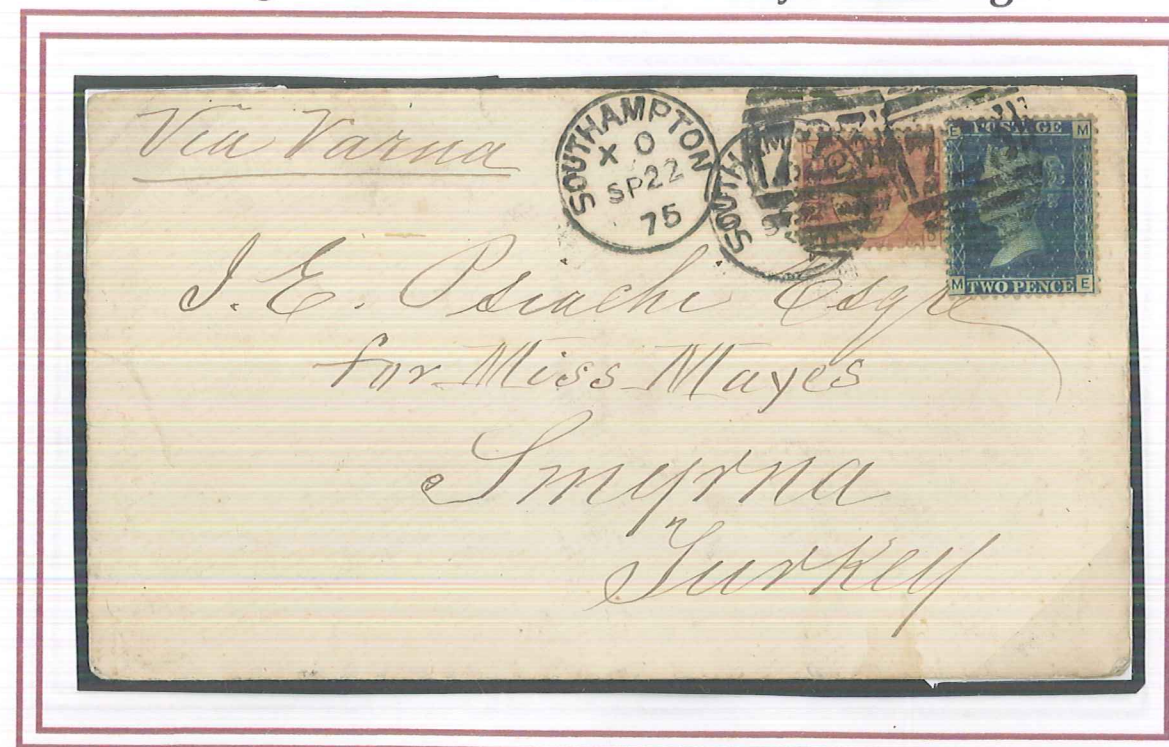 Via Varna
SOUTHAMPTON
X O
SP 22
75
SOUTH
E POSTAGE M
M TWO PENCE E
J. E. Psiachi Esqre
for Miss Mayes
Smyrna
Turkey